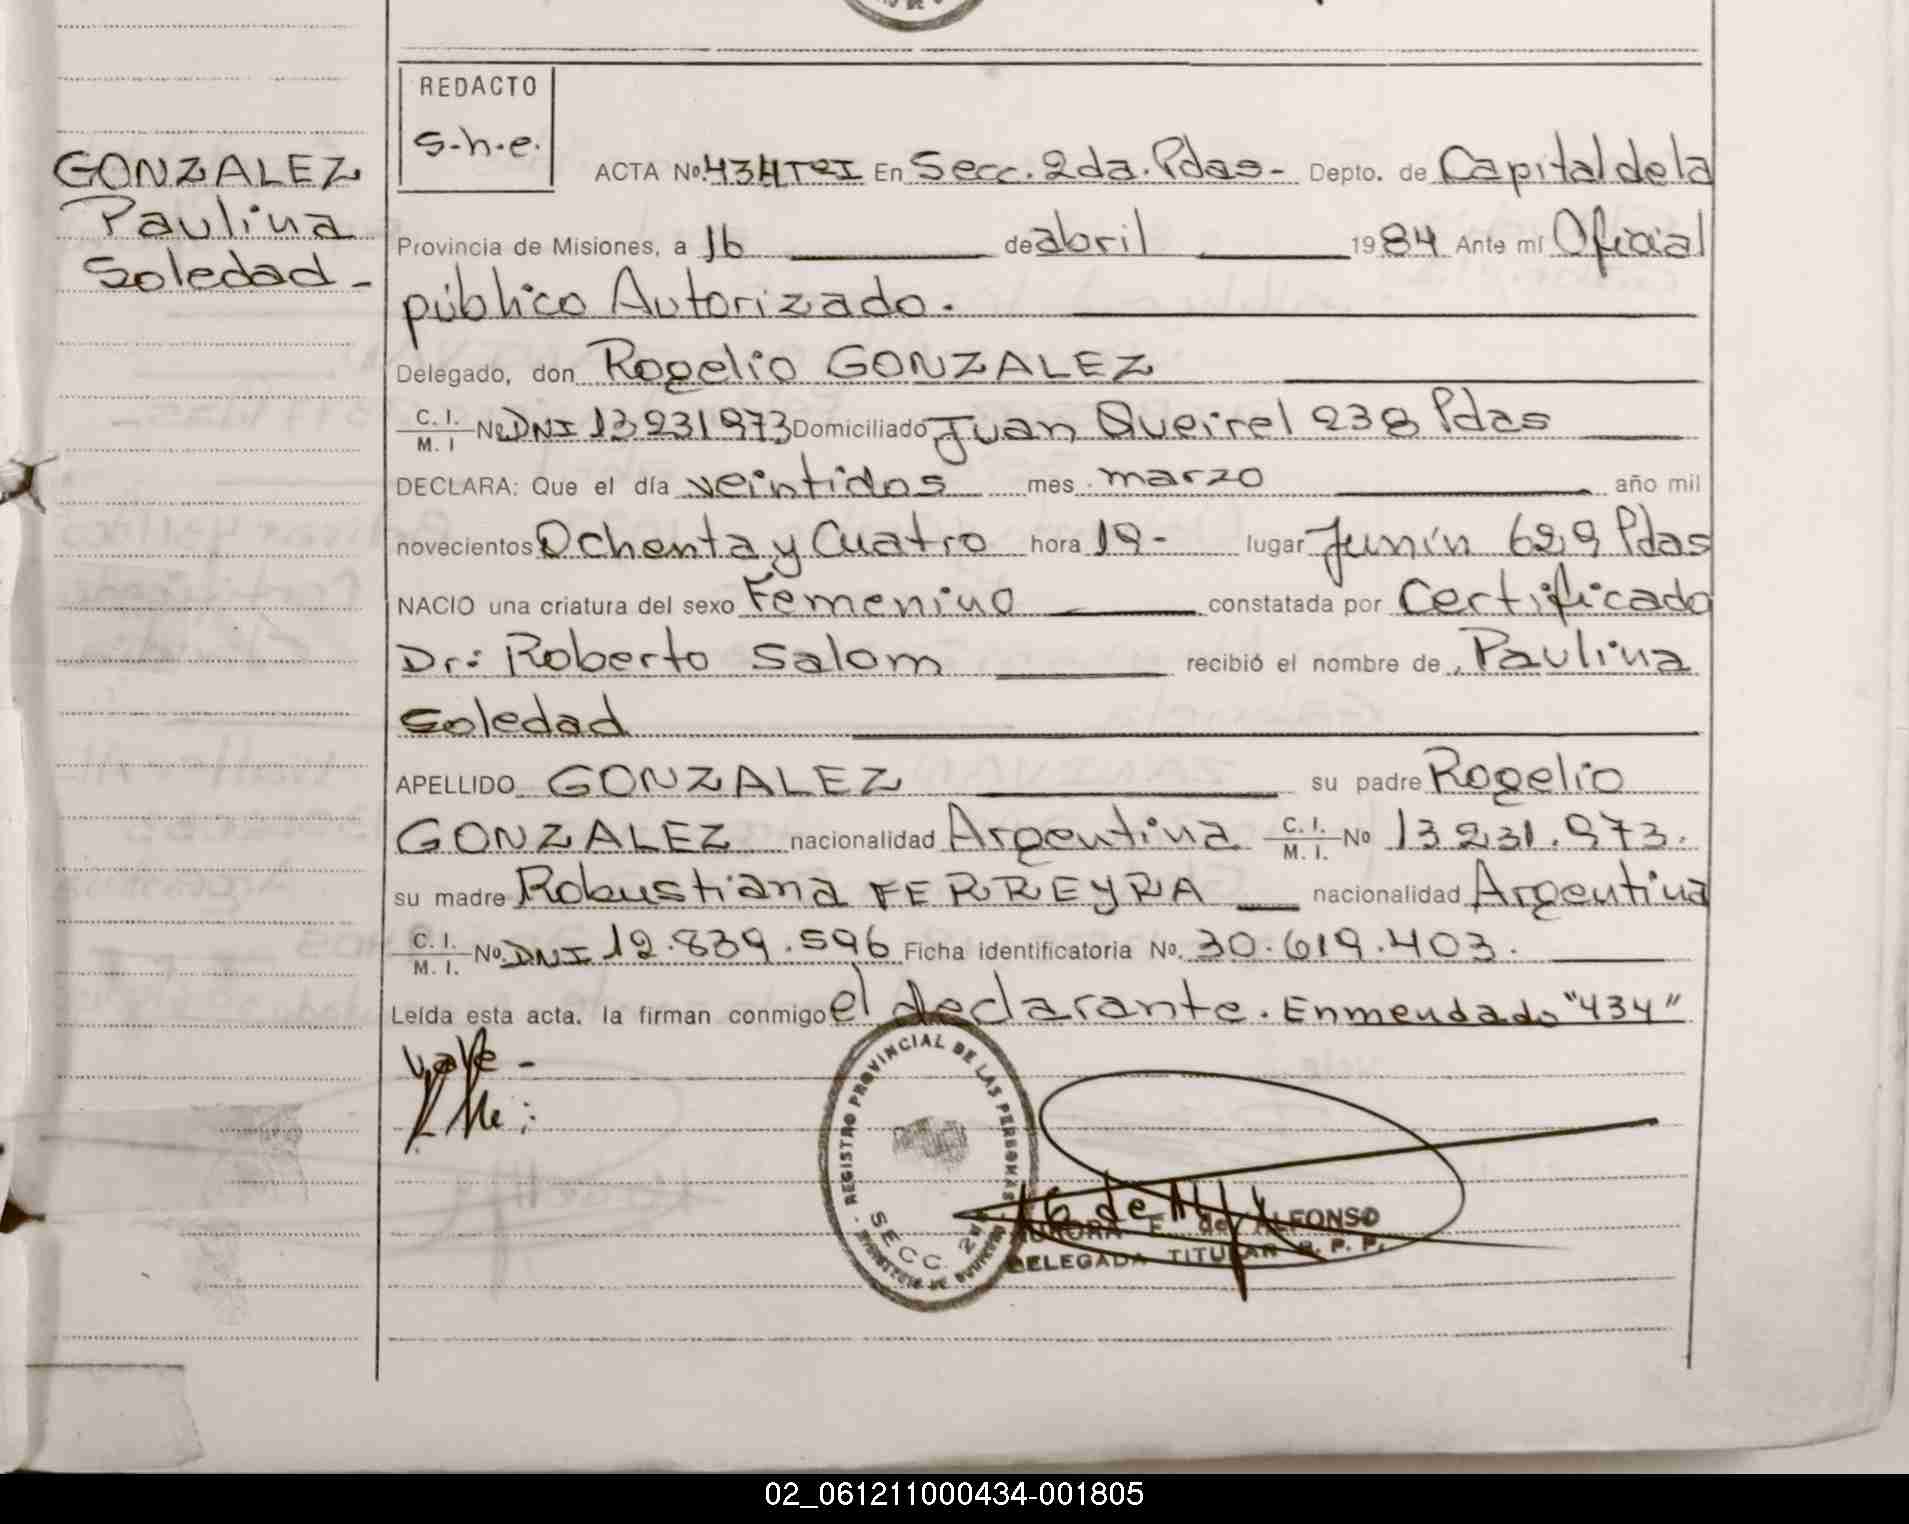 REDACTO
s-h-e.
GONZALEZ
Paulina
Soledad -
ACTA No. 434 TºI En Secc. 2da. Pdas- Depto. de Capital de la
Provincia de Misiones, a 16 de abril 1984 Ante mí Oficial
público Autorizado.
Delegado, don Rogelio GONZALEZ
C. I. / M. I No DNI 13231973 Domiciliado Juan Queirel 238 Pdas
DECLARA: Que el día veintidos mes marzo año mil
novecientos Ochenta y Cuatro hora 19- lugar Junín 629 Pdas
NACIO una criatura del sexo Femenino constatada por Certificado
Dr: Roberto Salom recibió el nombre de Paulina
Soledad
APELLIDO GONZALEZ su padre Rogelio
GONZALEZ nacionalidad Argentina C. I. / M. I. No 13231.973.
su madre Robustiana FERREYRA nacionalidad Argentina
C. I. / M. I. No. DNI 12.839.596 Ficha identificatoria No. 30.619.403.
Leída esta acta. la firman conmigo el declarante. Enmendado "434"
Vale -
REGISTRO PROVINCIAL DE LAS PERSONAS
SECC. 2da
AURORA E. de ALFONSO
DELEGADA TITULAR R. P. P.
02_061211000434-001805